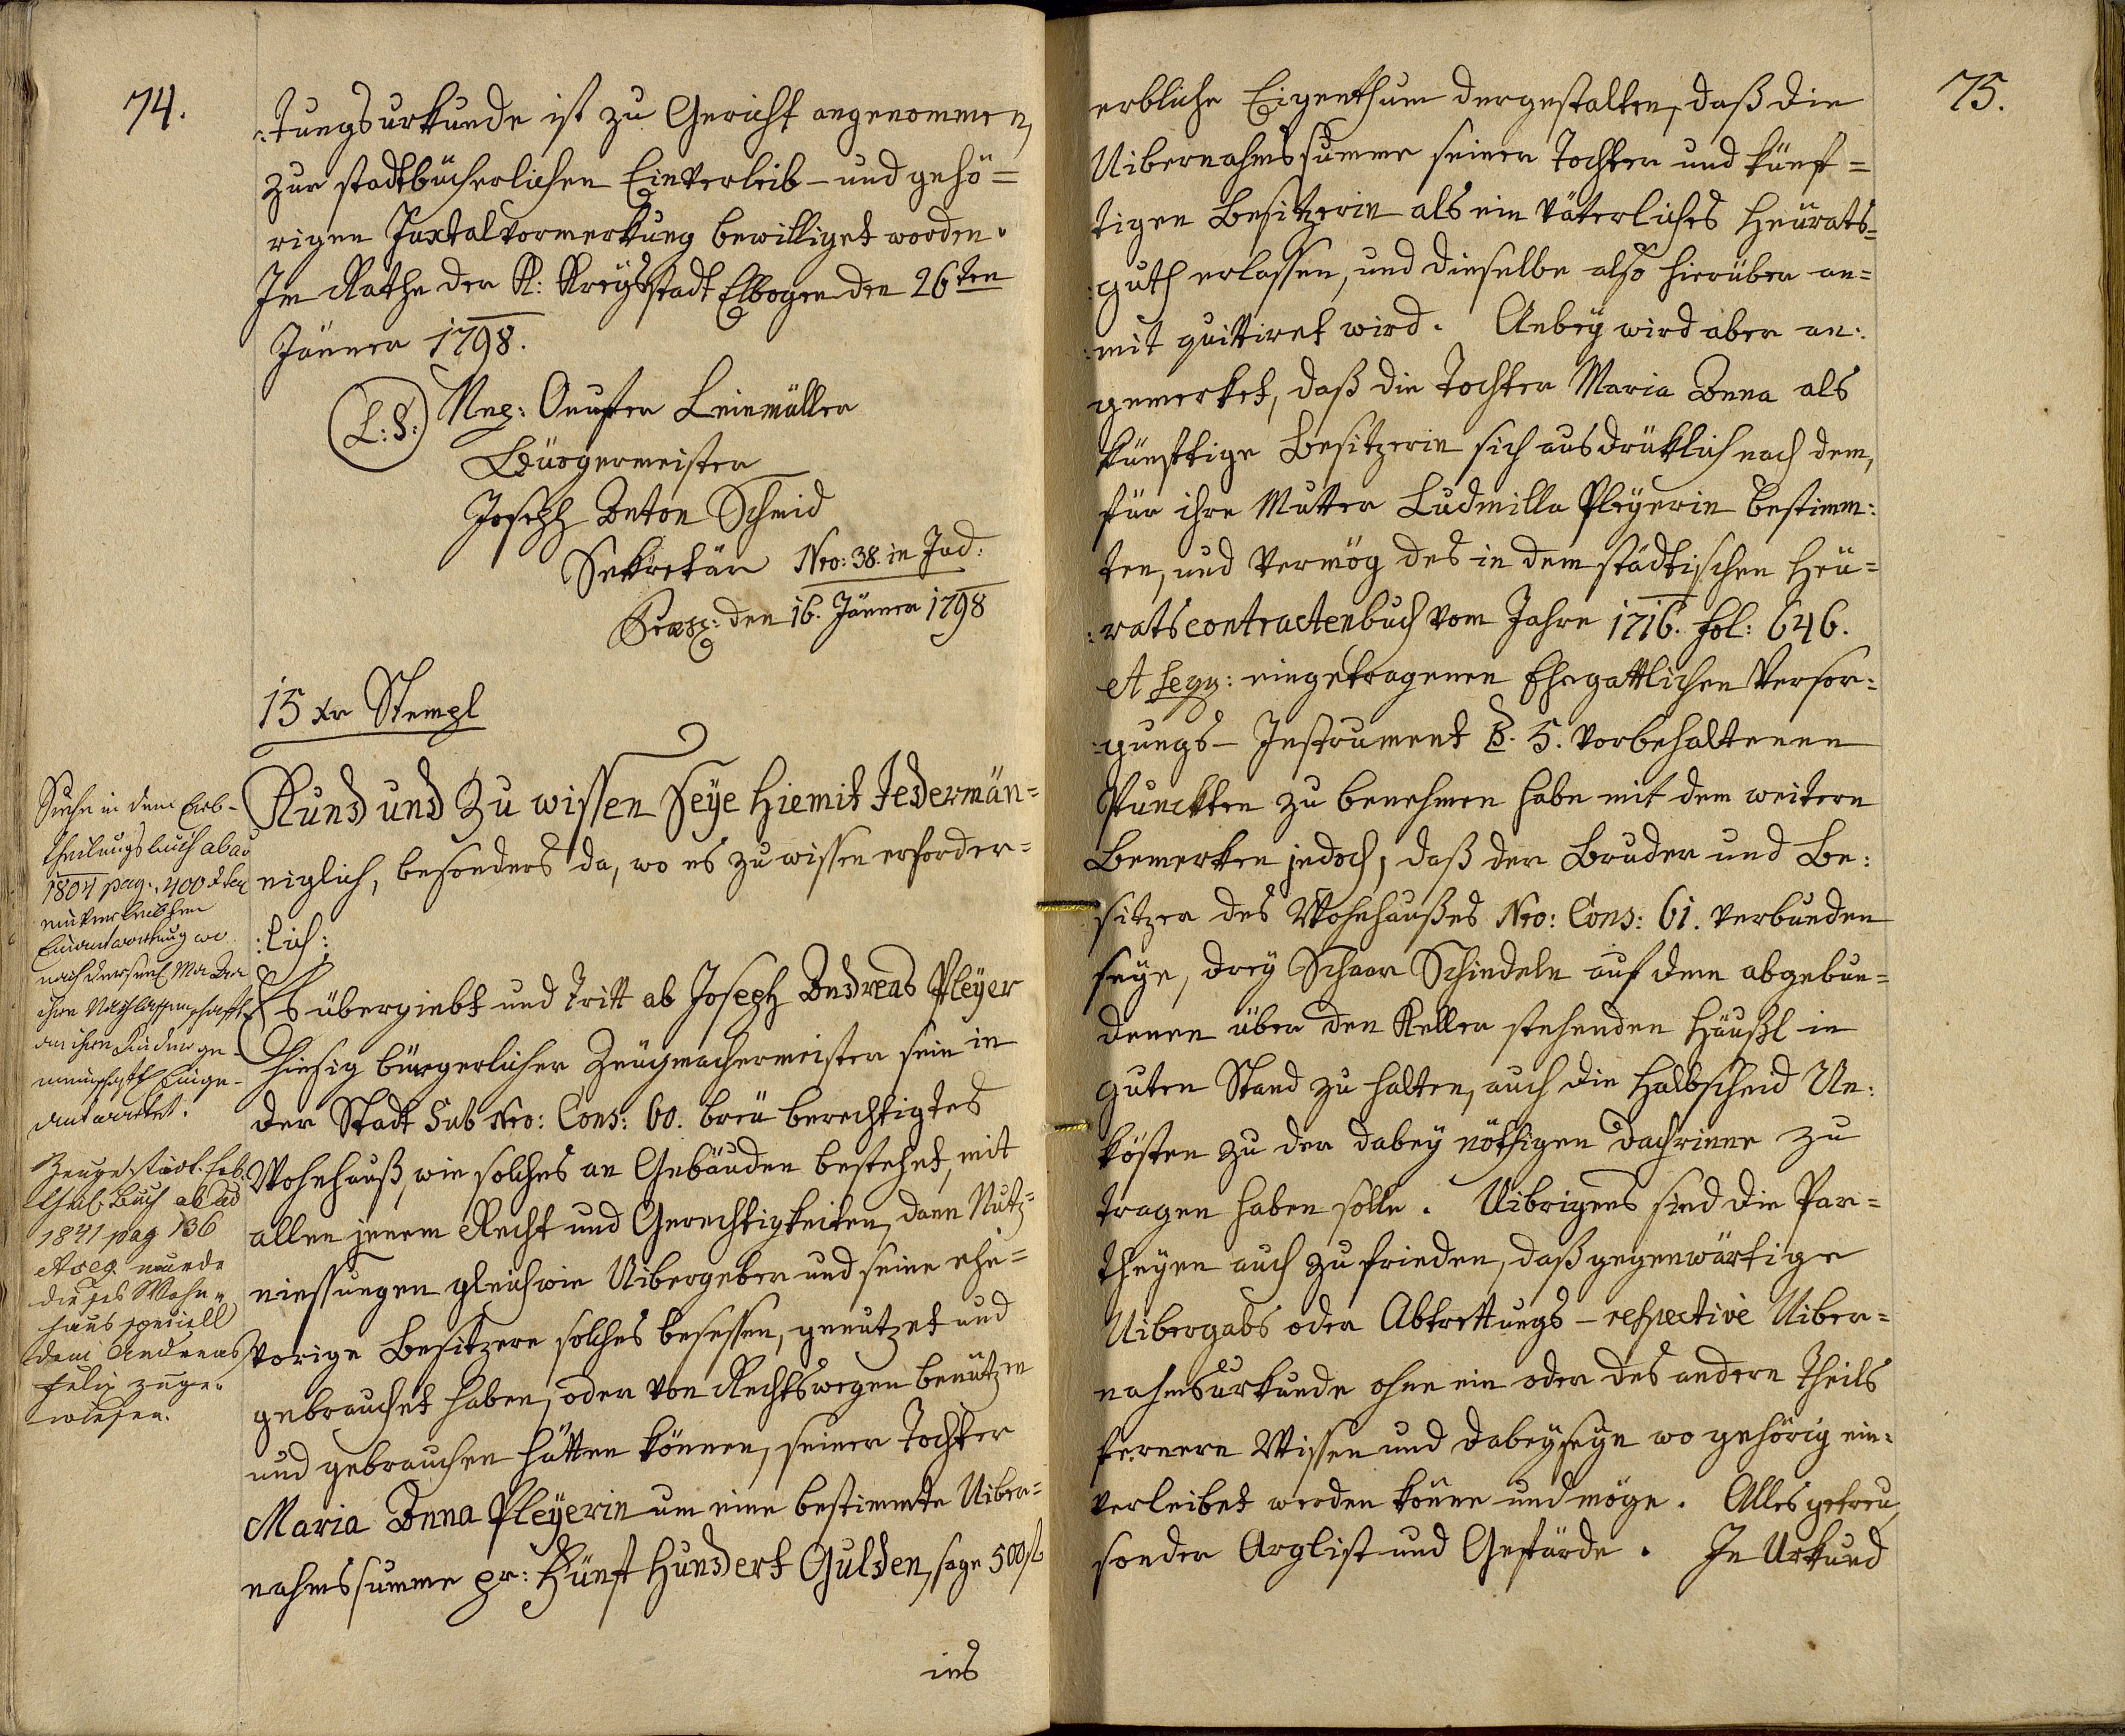 74.
:tungsurkunde ist zu Gericht angenommen,
zur stadtbücherlichen Einverleib- und gehö=
rigen Juxtalvormerkung bewilliget worden.
Im Rathe der K: Kreysstadt Elbogen den 26ten
Jänner 1798.
L:S:
Leinmüller
Bürgermeister
Joseph Anton Schmid
Sekretär Nro: 38. in Jud:
den 16. Jänner 1798
15 xr Stempl
Kund und Zu wissen Seye hiemit Jedermän=
niglich, besonders da, wo es zu wissen erforder=
:lich:
Es übergiebt und tritt ab Joseph Andreas Pleyer
hiesig bürgerlicher Zeugmachermeister sein in
der Stadt Sub Nro: Cons: 60. breu berechtigtes
Wohnhauß, wie solches an Gebäuden bestehet, mit
allen jenem Recht und Gerechtigkeiten, dann Nutz=
niessungen gleichwie Uibergeber und seine ehe=
vorige Besitzere solches besessen, genutzet und
gebrauchet haben, oder von Rechtswegen benützen
und gebrauchen hätten können, seiner Tochter
Maria Anna Pleyerin um eine bestimmte Uiber=
nahmssumme pr: Fünf Hundert Gulden, sage 500 fl
ins
Siehe in dem Erb-
theilungsbuch ab ao
1804 pag. 400 & seq
einverleibten
Einantwortung wo
nach derselb Mar Ana
ihre Verlassenschaft
an ihre Kinder ge-
meinschaftl Einge-
antwortet.
städt. Erb.
theil. Buch ab ao
1841 pag 136
et seq wurde
dieses Wohn-
haus speciell
dem Andreas
Felix zuge-
wiesen.
75.
erbliche Eigenthum dergestalten, daß die
Uibernahmssumme seiner Tochter und künf=
tigen Besitzerin als ein väterliches Heurats=
:guth erlassen, und dieselbe also hierüber an=
:mit quittiret wird. Anbey wird aber an:
gemerket, daß die Tochter Maria Anna als
künftige Besitzerin sich ausdrüklich nach dem,
für ihre Mutter Ludmilla Pleyerin bestimm:
ten, und vermög des in dem städtischen Heu=
:ratscontractenbuch vom Jahre 1716. fol: 646.
et seqq: eingetragenen Ehegattlichen Versor=
:gungs- Instrument §. 5. vorbehaltenen
Punckten zu benehmen habe mit dem weitern
Bemerken jedoch, daß der Bruder und Be:
sitzer des Wohnhaußes Nro: Cons: 61. verbunden
seye, drey Schaar Schindeln auf dem abgebun=
denen über den Keller stehenden Häußl in
guten Stand zu halten, auch die Halbscheid Un:
kösten zu der dabey nöthigen Dachrinne zu
tragen haben solle. Uibrigens sind die Par=
theyen auch zufrieden, daß gegenwärtige
Uibergabs oder Abtrettungs- respective Uiber=
nahmsurkunde ohne ein oder des andern Theils
fernern Wissen und Dabeyseyn wo gehörig ein=
verleibet werden könne und möge. Alles getreu,
sonder Arglist und Gefärde. In Urkund